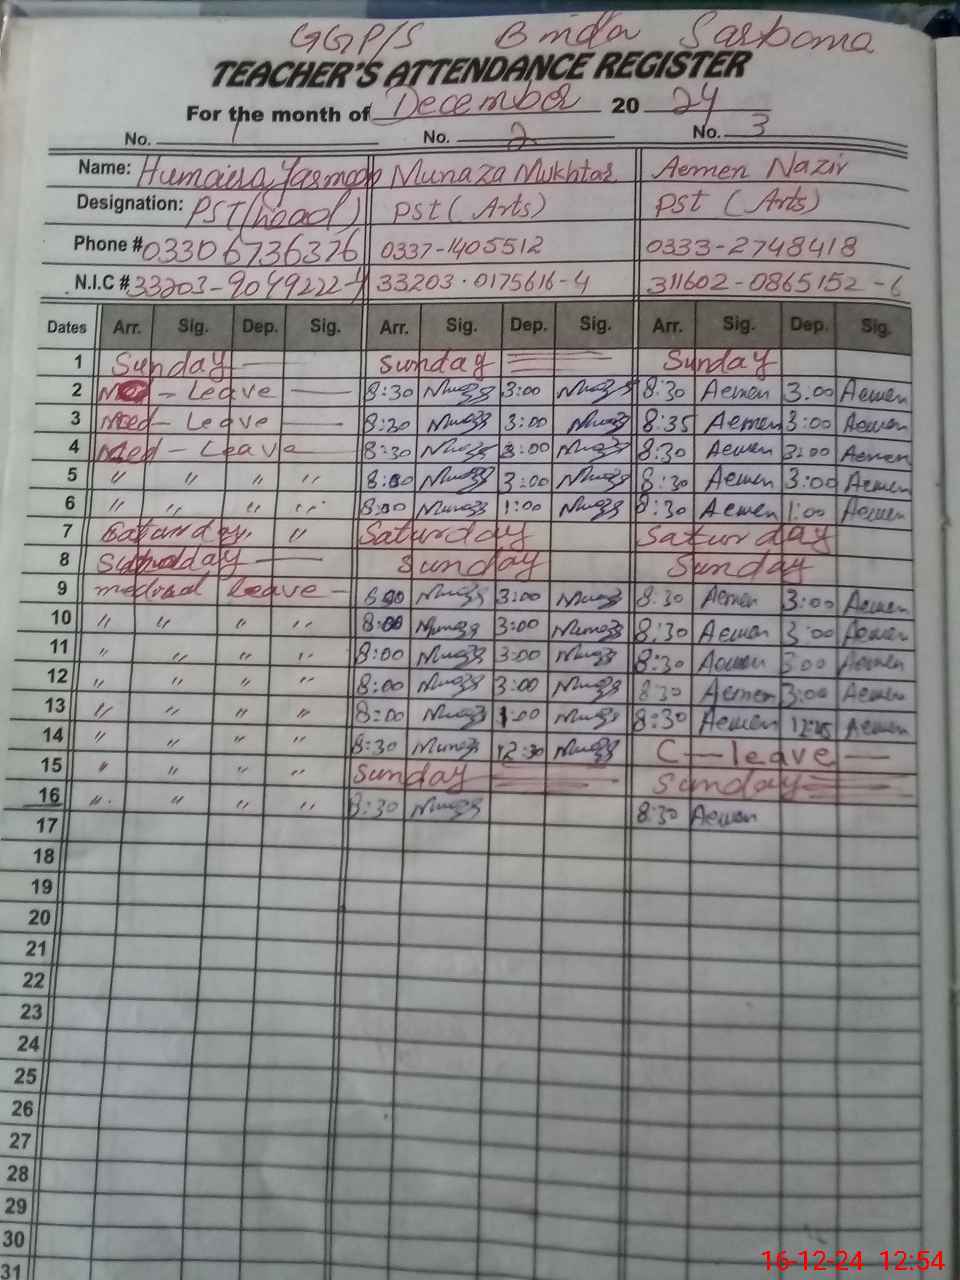 GGP/S Binda Sarbana
TEACHER'S ATTENDANCE REGISTER
For the month of December 20 24
No. 1 No. 2 No. 3
Name: Humaira Yasmeen Munaza Mukhtar Aemen Nazir
Designation: PST (head) PST (Arts) PST (Arts)
Phone # 03306736376 0337-1405512 0333-2748418
N.I.C # 33203-9049222-4 33203-0175616-4 311602-0865152-6
Dates Arr. Sig. Dep. Sig. Arr. Sig. Dep. Sig. Arr. Sig. Dep. Sig.
1 Sunday Sunday Sunday
2 Med - Leave 8:30 3:00 8:30 Aemen 3:00 Aemen
3 Med - Leave 8:20 3:00 8:35 Aemen 3:00 Aemen
4 Med - Leave 8:30 3:00 8:30 Aemen 3:00 Aemen
5 " " " " 3:00 8:30 Aemen 3:00 Aemen
6 " " " " 1:00 8:30 Aemen 1:00 Aemen
7 Saturday " Saturday Saturday
8 Sunday Sunday Sunday
9 medical leave - 3:00 8:30 Aemen 3:00 Aemen
10 " " " " 8:00 3:00 8:30 Aemen 3:00 Aemen
11 " " " " 8:00 3:00 8:30 Aemen 3:00 Aemen
12 " " " " 8:00 3:00 8:30 Aemen 3:00 Aemen
13 " " " " 8:00 1:00 8:30 Aemen Aemen
14 " " " " 8:30 12:30 C - leave
15 " " " " Sunday Sunday
16 " " " " 8:30 8:30 Aemen
17
18
19
20
21
22
23
24
25
26
27
28
29
30
31
16-12-24 12:54